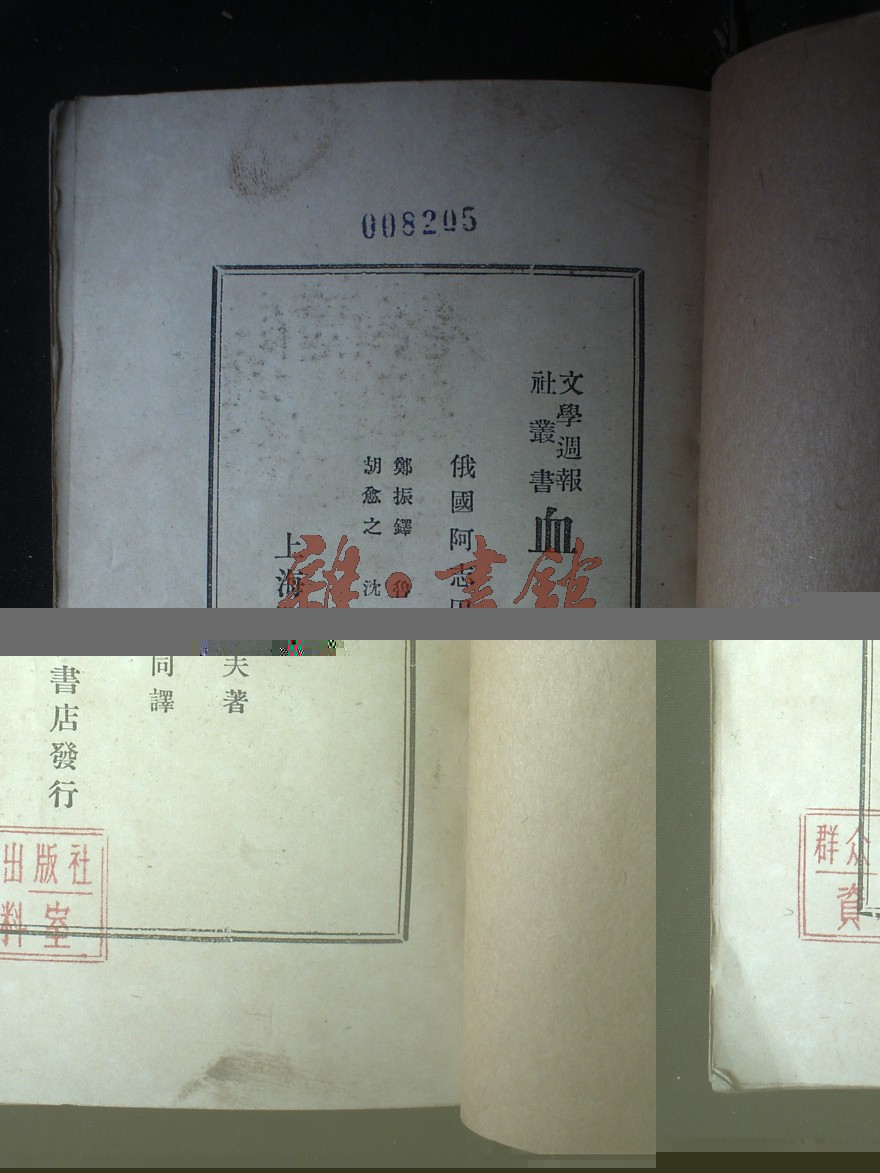 008205
文學週報
社叢書
血
俄國阿志
鄭振鐸
胡愈之 沈
上海
雜·書館
夫著
同譯
書店發行
出版社
料室
群众
資